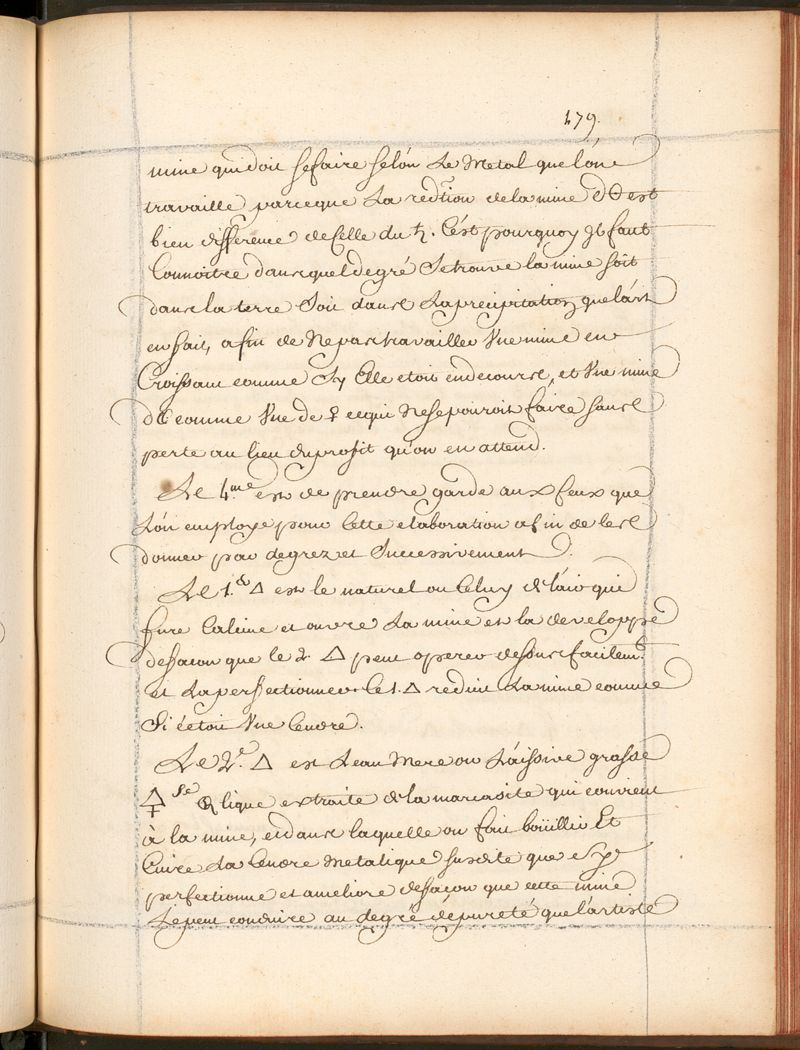 179.
mine qui doit se faire selon Le Metal que lon
travaille parceque La redtion de la mine d☉ est
bien differene de Celle du ♄. C'est pourquoy il faut
Connoitre dans quel degré Se trouve la mine soit
dans la terre Soit dans La precipitation que l'art
en fait, afin de Ne pas travailler Vne mine en
Croissant comme Sy Elle etoit en decours, et Vne mine
d☾ comme Vne de ♀ ce qui Ne se pouroit faire sans
perte au lieu du profit qu'on en attend.
Le 4.me est de prendre garde aux feux que
L'on employe pour Cette elaboration afin de les
donner par degrez et Successivement.
Le 1.er △ est le naturel ou Celuy de l'air qui
Calcine et ouvre La mine et la developpe
de facon que le 2. △ peut operer dessus facilem.t
et La perfectionner. Le 1. △ reduit La mine comme
Si c'etoit Vne Cendre.
Le 2.e △ est L'eau Mere ou L'aissive grasse
🜍 se lique extraite de la marcasite qui convient
à la mine, et dans laquelle on fait boüillir Et
Cuire La Cendre Metalique susdite que
perfectionne et ameliore de façon que cette mine
Se peut conduire au degré de pureté que l'artiste